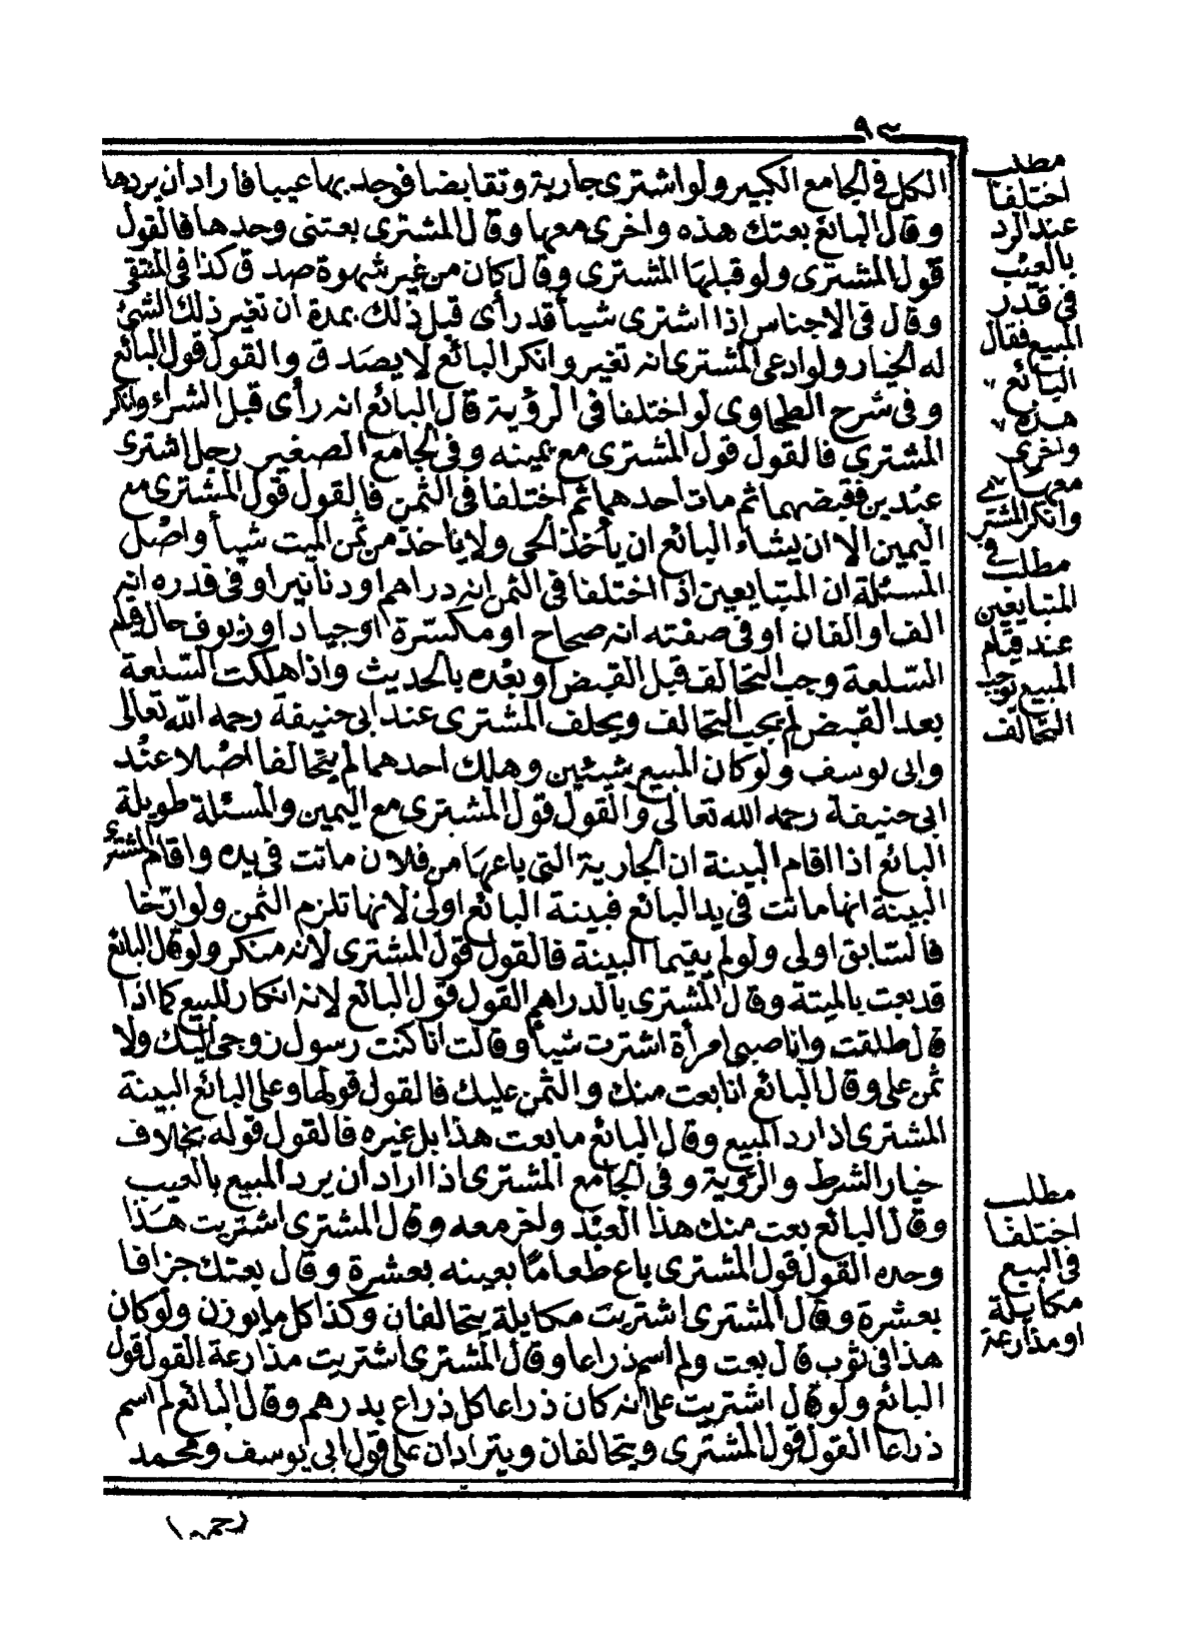 ٩٣
الكل فى الجامع الكبير ولو اشترى جارية وتقابضا فوجد بها عيبا فأراد ان يردها
وقال البائع بعتك هذه واخرى معها وقال المشترى بعتنى وحدها فالقول
قول المشترى ولو قبلها المشترى وقال كان من غير شهوة صدق كذا فى المنتقى
وقال فى الاجناس اذا اشترى شيأ قد رأى قبل ذلك بمدة ان تغير ذلك الشئ
له الخيار ولو ادعى المشترى انه تغير وانكر البائع لا يصدق والقول قول البائع
وفى شرح الطحاوى لو اختلفا فى الرؤية قال البائع انه رأى قبل الشراء وانكر
المشترى فالقول قول المشترى مع يمينه وفى الجامع الصغير رجل اشترى
عبدين فقبضهما ثم مات احدهما ثم اختلفا فى الثمن فالقول قول المشترى مع
اليمين الا ان يشاء البائع ان يأخذ الحى ولا يأخذ من ثمن الميت شيأ واصل
المسئلة ان المتبايعين اذا اختلفا فى الثمن انه دراهم او دنانير او فى قدره انه
الف او الفان او فى صفته انه صحاح او مكسرة او جياد او زيوف حال قيام
السلعة وجب التحالف قبل القبض او بعده بالحديث واذا هلكت السلعة
بعد القبض لم يجب التحالف ويحلف المشترى عند ابى حنيفة رحمه الله تعالى
وابى يوسف ولو كان المبيع شيئين وهلك احدهما لم يتحالفا اصلا عند
ابى حنيفة رحمه الله تعالى والقول قول المشترى مع اليمين والمسئلة طويلة
البائع اذا اقام البينة ان الجارية التى باعها من فلان ماتت فى يده واقام المشترى
البينة انها ماتت فى يد البائع فبينة البائع اولى لانها تلزم الثمن ولو ارّخا
فالسابق اولى ولو لم يقيما البينة فالقول قول المشترى لانه منكر ولو قال البائع
قد بعت بالميتة وقال المشترى بالدراهم القول قول البائع لانه انكار للبيع كما اذا
قال طلقت وانا صبى امرأة اشترت شيأ وقالت انا كنت رسول زوجى اليك ولا
ثمن على وقال البائع انا بعت منك والثمن عليك فالقول قولها وعلى البائع البينة
المشترى اذا رد المبيع وقال البائع ما بعت هذا بل غيره فالقول قوله بخلاف
خيار الشرط والرؤية وفى الجامع المشترى اذا اراد ان يرد المبيع بالعيب
وقال البائع بعت منك هذا العبد واخر معه وقال المشترى اشتريت هذا
وحده القول قول المشترى باع طعاما بعينه بعشرة وقال بعتك جزافا
بعشرة وقال المشترى اشتريت مكايلة يتحالفان وكذا كل ما يوزن ولو كان
هذا فى ثوب قال بعت ولم اسم ذراعا وقال المشترى اشتريت مذارعة القول قول
البائع ولو قال اشتريت على انه كان ذراعا كل ذراع بدرهم وقال البائع لم اسم
ذراعا القول قول المشترى ويتحالفان ويترادان على قول ابى يوسف ومحمد
رحمهما
مطلب
اختلفا
عند الرد
بالعيب
فى قدر
المبيع فقال
البائع
هذه
واخرى
معها
وانكر المشترى
مطلب فى
المتبايعين
عند قيام
المبيع يوجب
التحالف
مطلب
اختلفا
فى البيع
مكايلة
او مذارعة